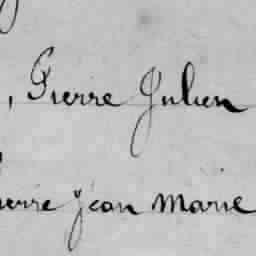 , Pierre Julien
ierre Jean Marie